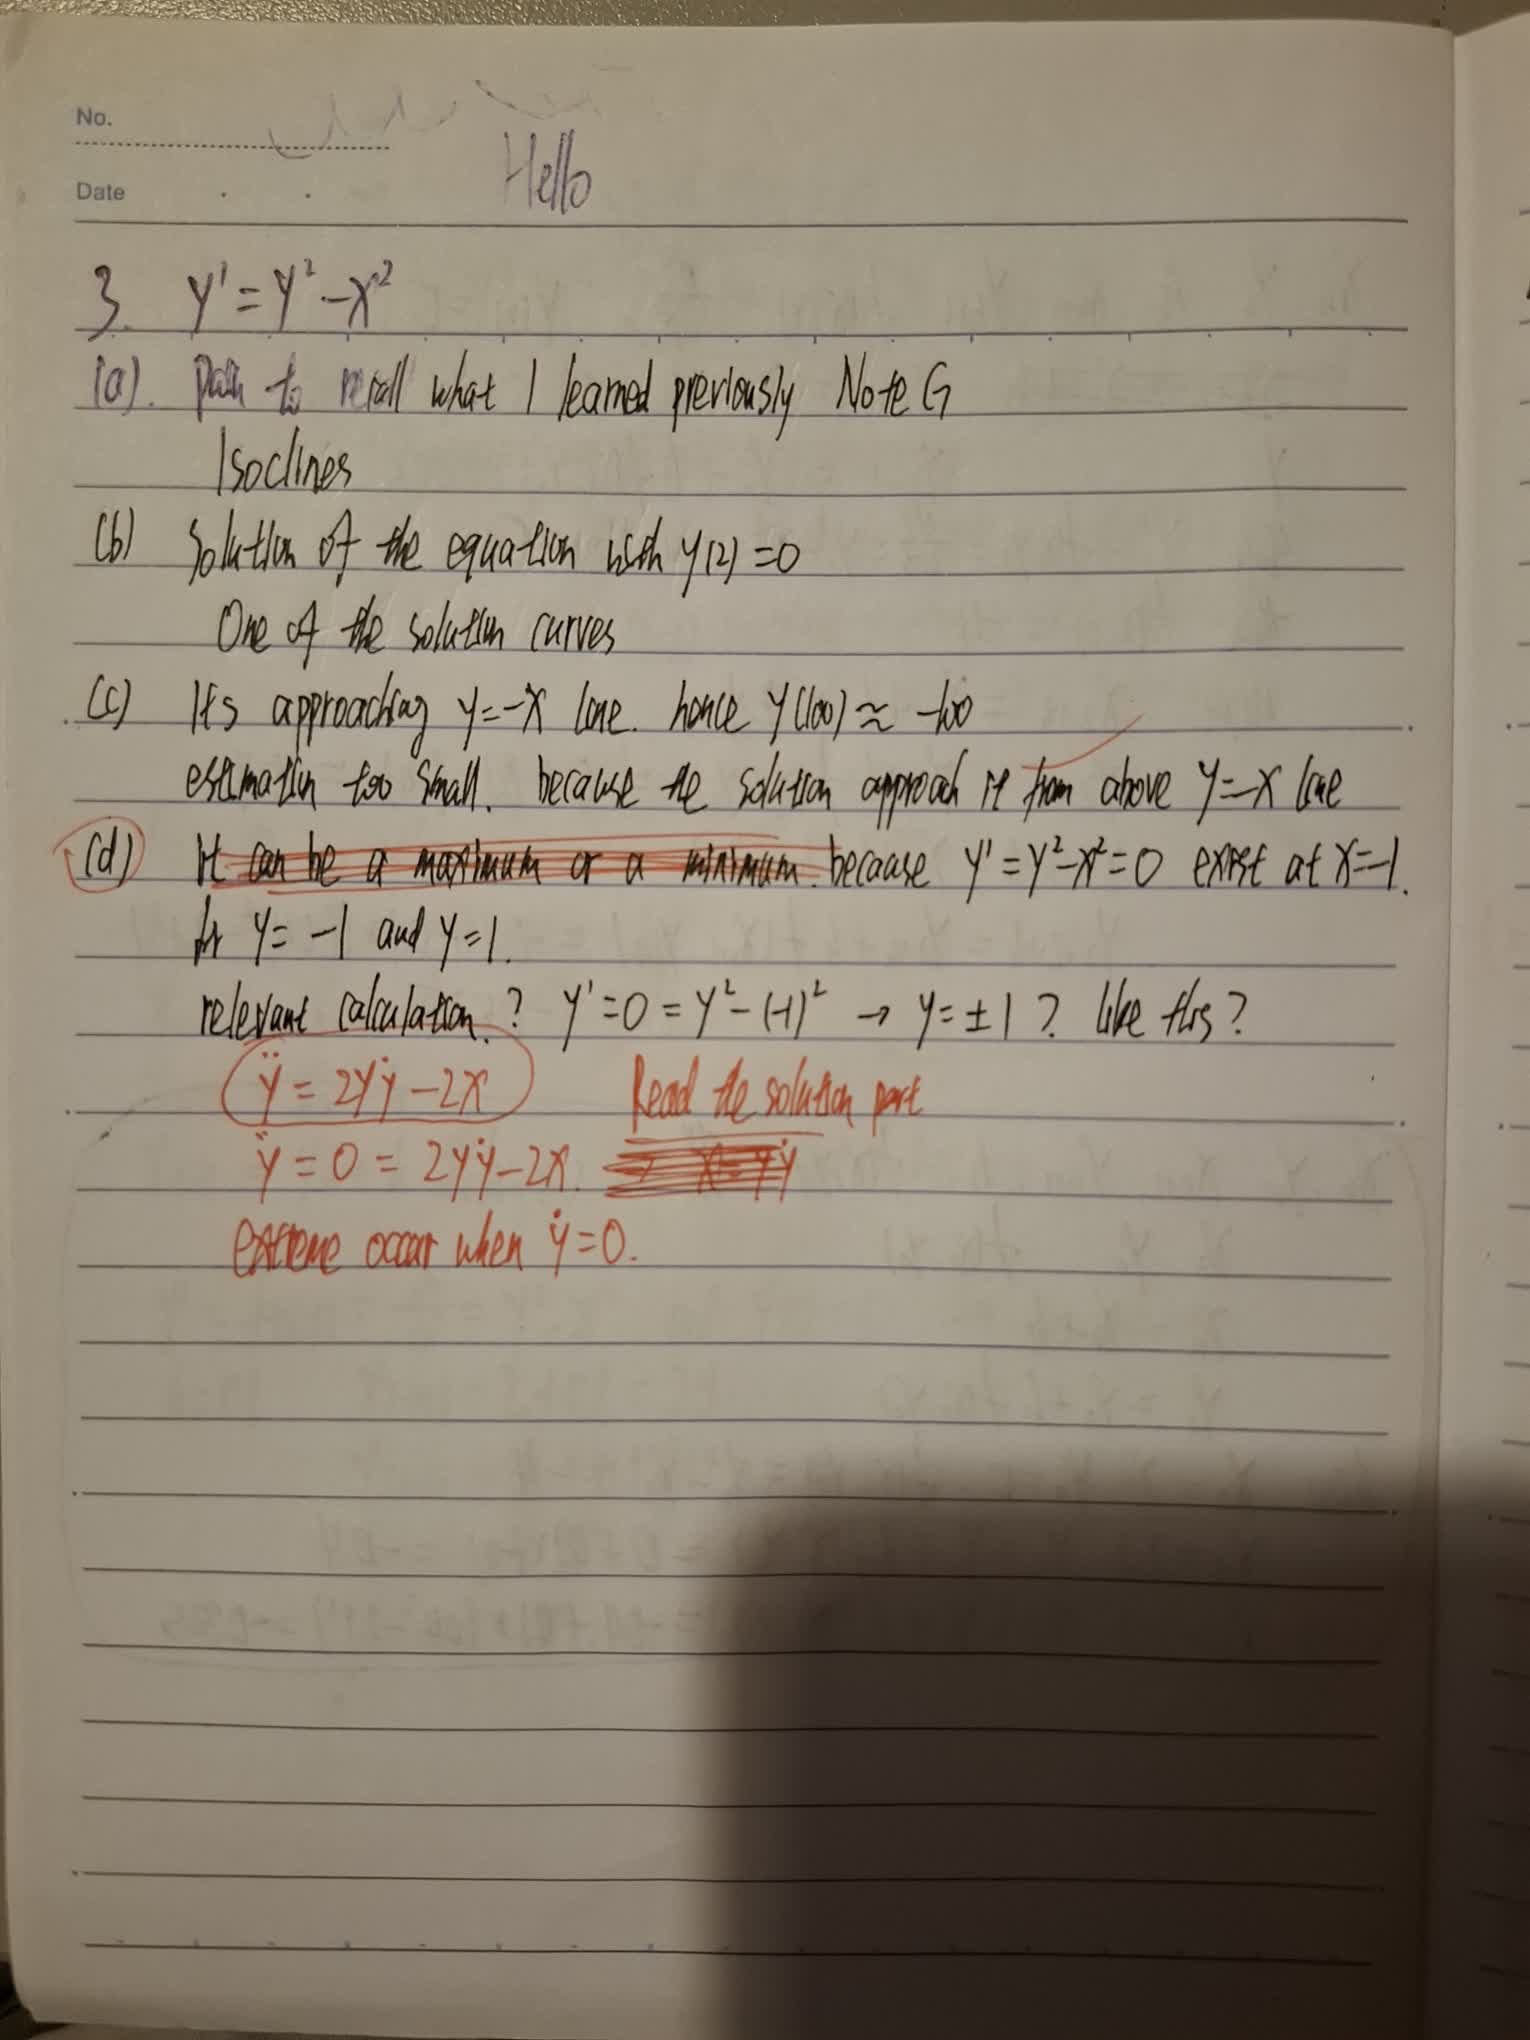 No.
Date
Hello
3. y' = y² - x²
(a). to recall what I learned previously Note G
Isoclines
(b) Solution of the equation with y(2) = 0
One of the solution curves
(c) It's approaching y = -x line. hence y(100) ≈ -100
estimation too small. because the solution approach it from above y = -x line
(d) It can be a maximum or a minimum. because y' = y² - x² = 0 exist at x = -1.
for y = -1 and y = 1.
relevant calculation.? y' = 0 = y² - (-1)² → y = ± 1 ? like this?
ÿ = 2yẏ - 2x Read the solution part
ÿ = 0 = 2yẏ - 2x. → x = yẏ
extreme occur when ẏ = 0.